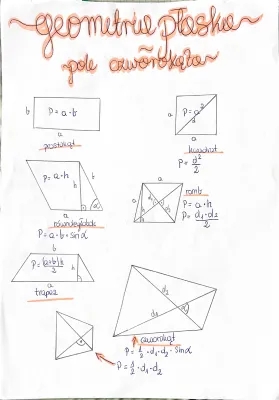 geometria płaska
pole czworokąta
b
P = a·b
a
prostokąt
P = a²
d
a
a
kwadrat
P = d²/2
P = a·h
h
b
a
α
równoległobok
P = a·b·sinα
a
h
a
romb
P = a·h
P = d₁·d₂/2
b
P = (a+b)h/2
h
a
trapez
d₂
α
d₁
czworokąt
P = 1/2·d₁·d₂·sinα
P = 1/2·d₁·d₂